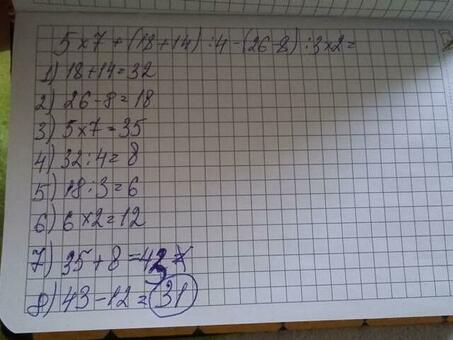 5×7+(18+14):4-(26-8):3×2=
1) 18+14=32
2) 26-8=18
3) 5×7=35
4) 32:4=8
5) 18:3=6
6) 6×2=12
7) 35+8=43
8) 43-12=31